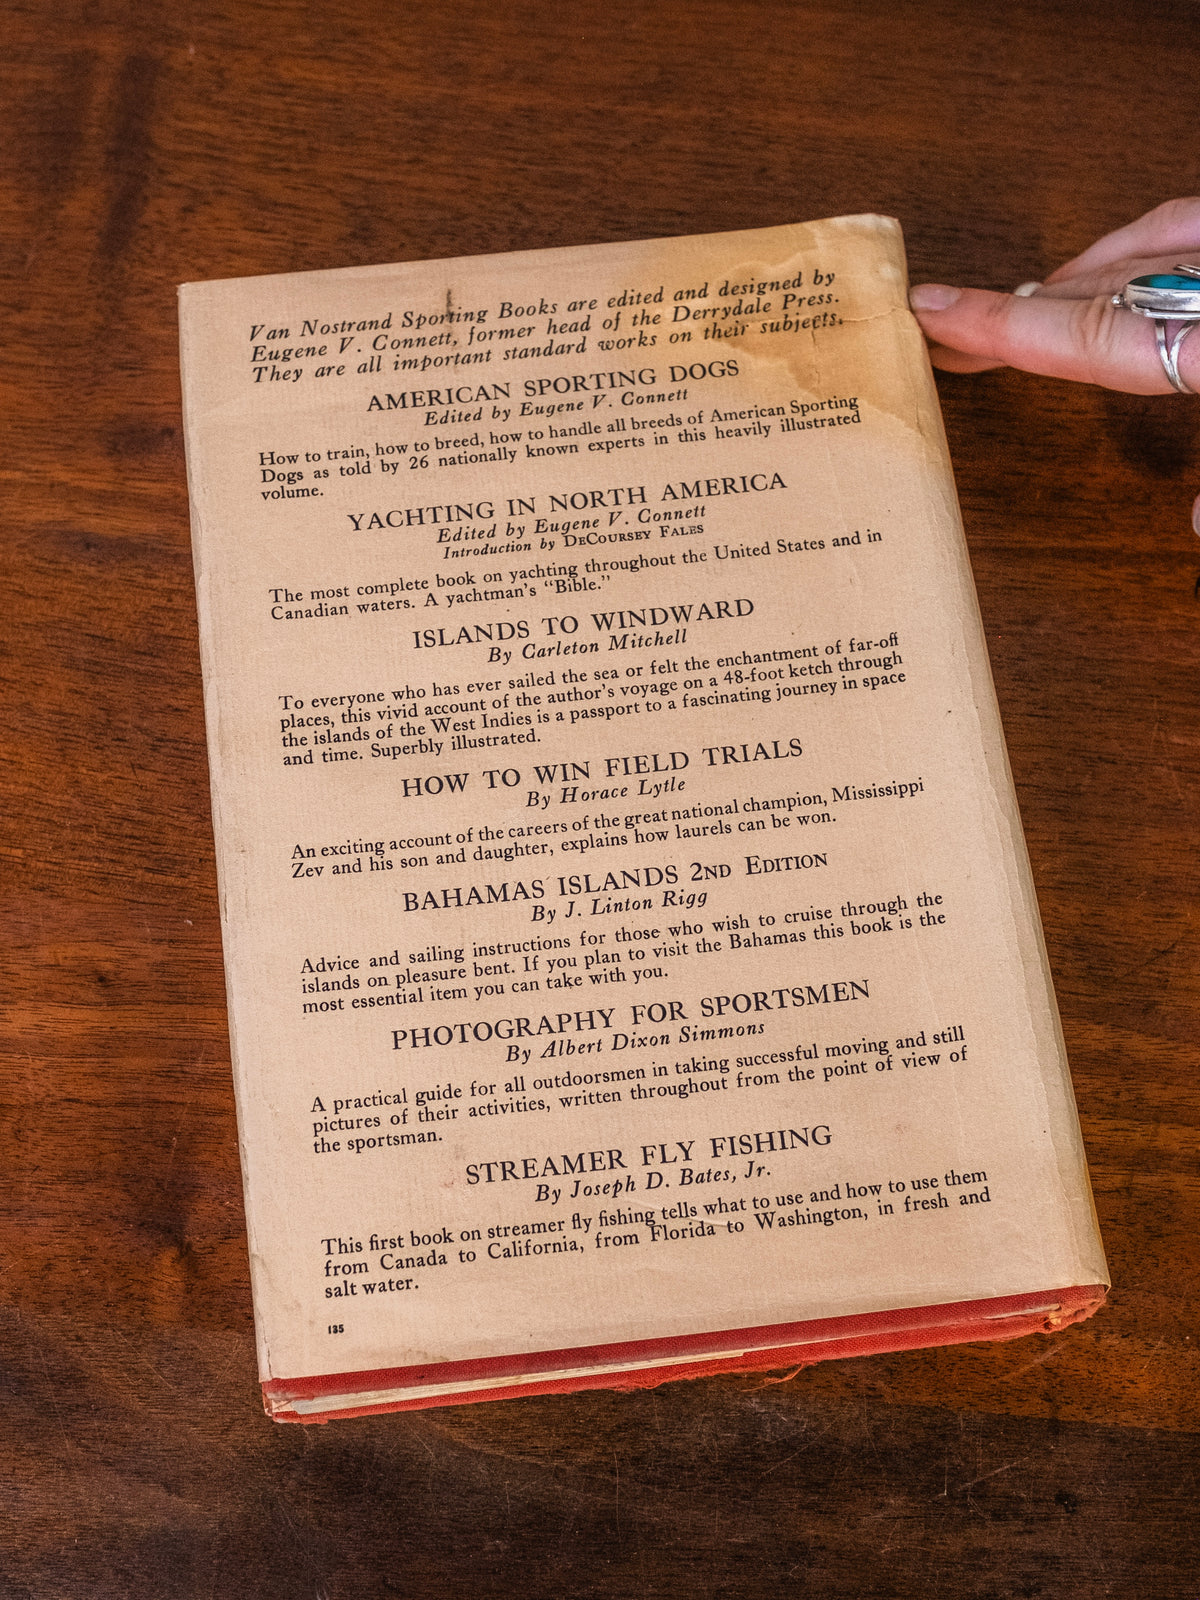 Van Nostrand Sporting Books are edited and designed by
Eugene V. Connett, former head of the Derrydale Press.
They are all important standard works on their subjects.
AMERICAN SPORTING DOGS
Edited by Eugene V. Connett
How to train, how to breed, how to handle all breeds of American Sporting
Dogs as told by 26 nationally known experts in this heavily illustrated
volume.
YACHTING IN NORTH AMERICA
Edited by Eugene V. Connett
Introduction by DECOURSEY FALES
The most complete book on yachting throughout the United States and in
Canadian waters. A yachtman's "Bible."
ISLANDS TO WINDWARD
By Carleton Mitchell
To everyone who has ever sailed the sea or felt the enchantment of far-off
places, this vivid account of the author's voyage on a 48-foot ketch through
the islands of the West Indies is a passport to a fascinating journey in space
and time. Superbly illustrated.
HOW TO WIN FIELD TRIALS
By Horace Lytle
An exciting account of the careers of the great national champion, Mississippi
Zev and his son and daughter, explains how laurels can be won.
BAHAMAS ISLANDS 2ND EDITION
By J. Linton Rigg
Advice and sailing instructions for those who wish to cruise through the
islands on pleasure bent. If you plan to visit the Bahamas this book is the
most essential item you can take with you.
PHOTOGRAPHY FOR SPORTSMEN
By Albert Dixon Simmons
A practical guide for all outdoorsmen in taking successful moving and still
pictures of their activities, written throughout from the point of view of
the sportsman.
STREAMER FLY FISHING
By Joseph D. Bates, Jr.
This first book on streamer fly fishing tells what to use and how to use them
from Canada to California, from Florida to Washington, in fresh and
salt water.
135